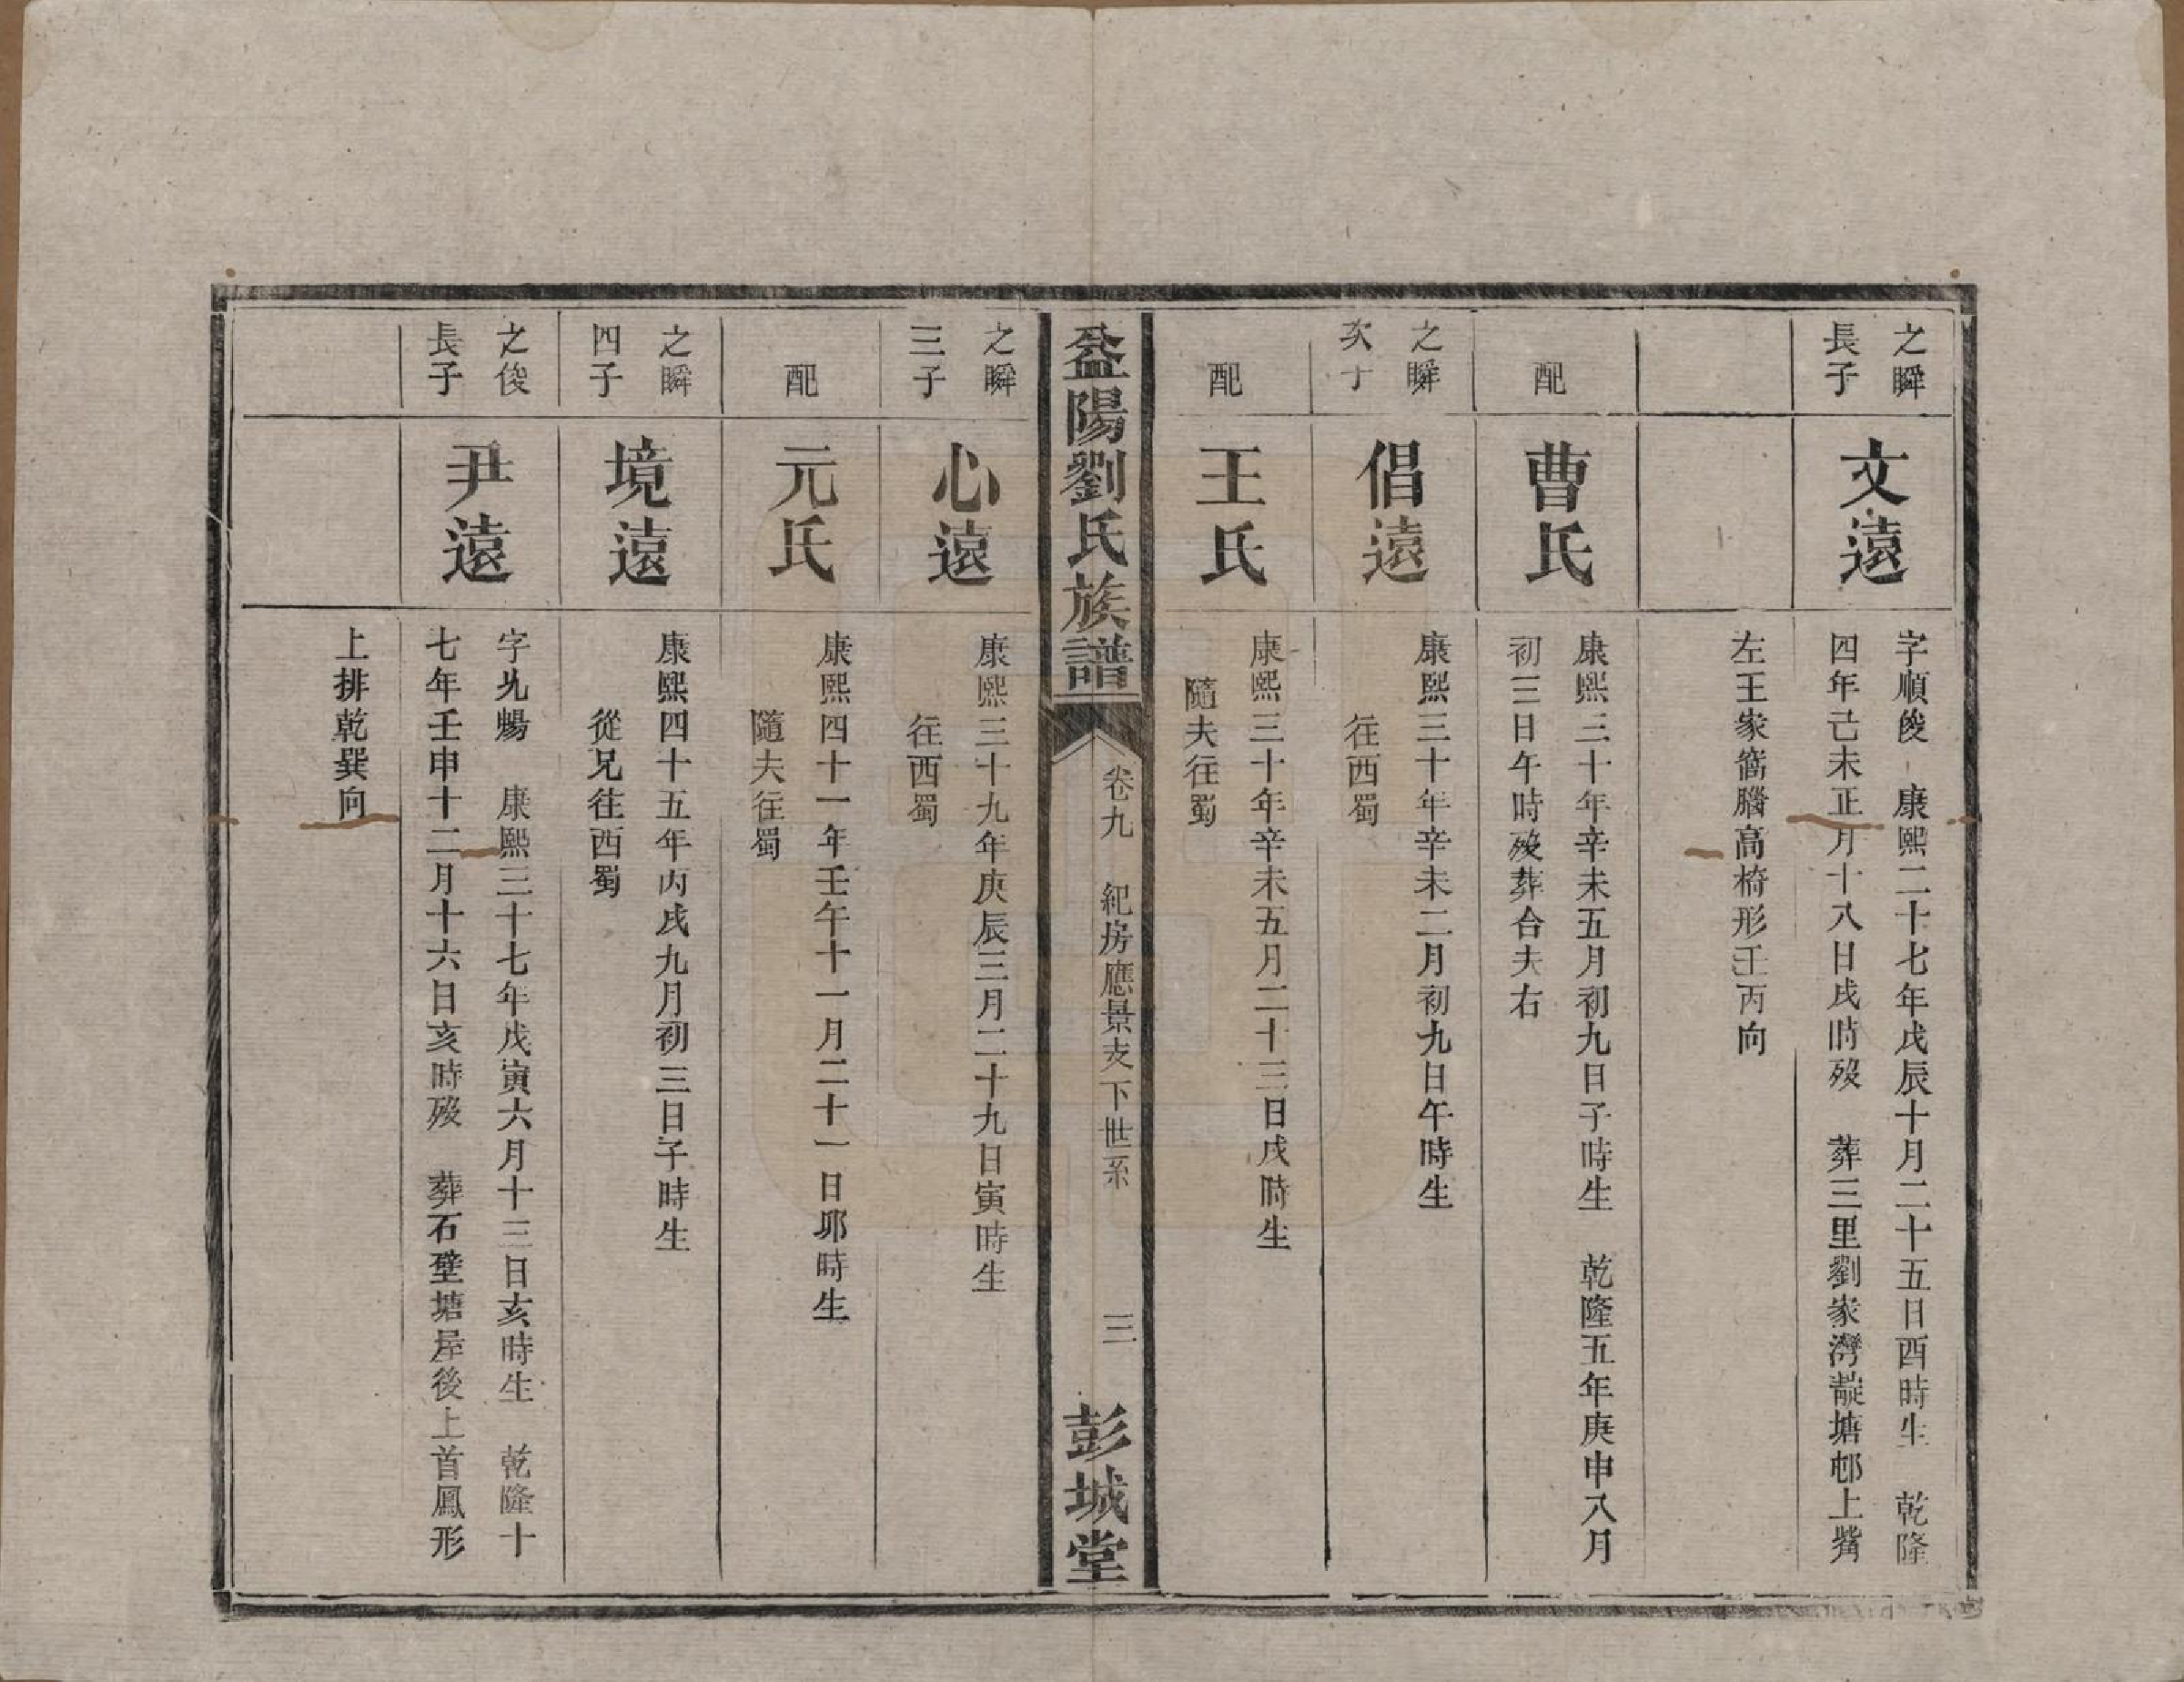 之瞬
長子
文遠
字順俊 康熙二十七年戊辰十月二十五日酉時生 乾隆
四年己未正月十八日戌時歿 葬三里劉家灣龍塘邨上觜
左王家嵛腦高椅形壬丙向
配
曹氏
康熙三十年辛未五月初九日子時生 乾隆五年庚申八月
初三日午時歿葬合夫右
之瞬
次子
倡遠
康熙三十年辛未二月初九日午時生
往西蜀
配
王氏
康熙三十年辛未五月二十三日戌時生
隨夫往蜀
益陽劉氏族譜
卷九 紀房應景支下世系
三
彭城堂
之瞬
三子
心遠
康熙三十九年庚辰三月二十九日寅時生
往西蜀
配
元氏
康熙四十一年壬午十一月二十一日夘時生
隨夫往蜀
之瞬
四子
境遠
康熙四十五年丙戌九月初三日子時生
從兄往西蜀
之俊
長子
尹遠
字允暢 康熙三十七年戊寅六月十三日亥時生 乾隆十
七年壬申十二月十六日亥時歿 葬石壁塘屋後上首鳳形
上排乾巽向